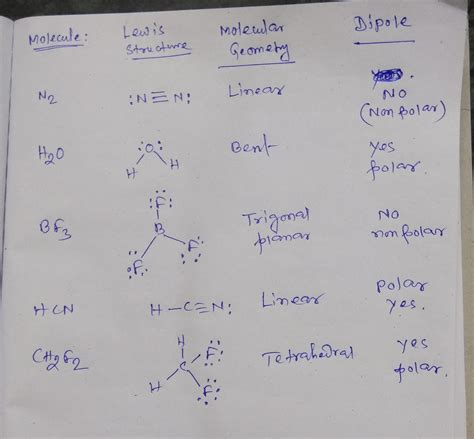 Molecule: Lewis Structure Molecular Geometry Dipole
N2 :N≡N: Linear NO (Nonpolar)
H2O :O: H H Bent Yes polar.
BF3 :F: B F: :F Trigonal planar NO nonpolar
HCN H-C≡N: Linear polar Yes.
CH2F2 H C F: H F: Tetrahedral yes polar.